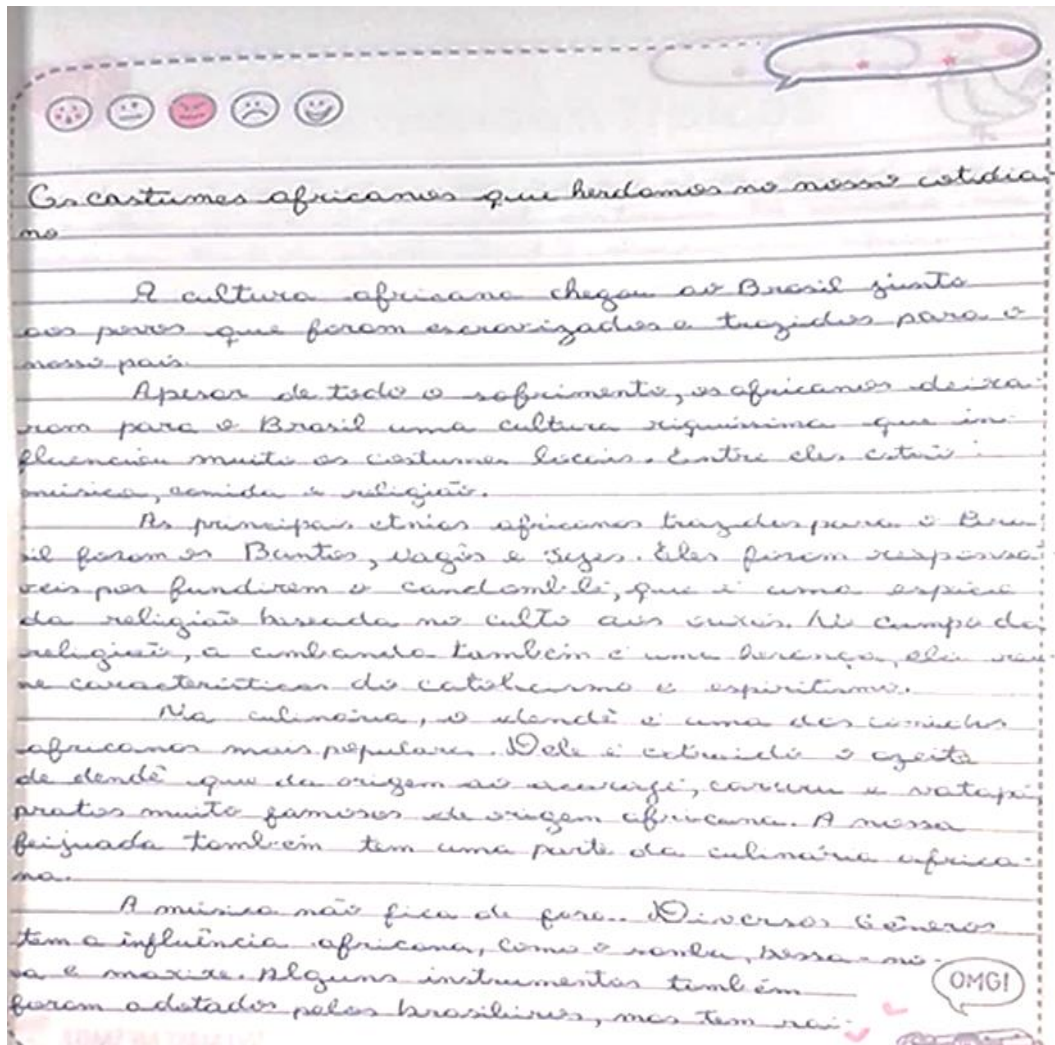 Os costumes africanos que herdamos no nosso cotidia-
no
A cultura africana chegou ao Brasil junto
aos povos que foram escravizados e trazidos para o
nosso país.
Apesar de todo o sofrimento, os africanos deixa-
ram para o Brasil uma cultura riquíssima que in-
fluenciou muito os costumes locais. Entre eles estão:
música, comida e religião.
As principais etnias africanas trazidas para o Bra-
sil foram os Bantos, nagôs e Jejes. Eles foram responsá-
veis por fundirem o candomblé, que é uma espécie
da religião baseada no culto aos orixás. No campo da
religião, a umbanda também é uma herança, ela reú-
ne características do catolicismo e espiritismo.
Na culinária, o dendê é uma das comidas
africanas mais populares. Dele é extraído o azeite
de dendê que da origem ao acarajé, caruru e vatapá,
pratos muito famosos de origem africana. A nossa
feijuada também tem uma parte da culinária africa-
na.
A música não fica de fora.. Diversos Gêneros
tem a influência africana, como o samba, bossa-no-
va e maxixe. Alguns instrumentos também
foram adotados pelos brasileiros, mas tem raí-
OMG!